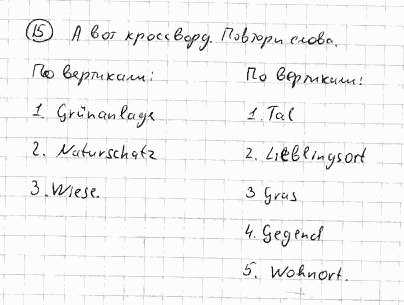 15 А вот кроссворд. Повтори слова.
По вертикали:
1. Grünanlage
2. Naturschatz
3. Wiese.
По вертикали:
1. Tal
2. Lieblingsort
3 Gras
4. Gegend
5. Wohnort.